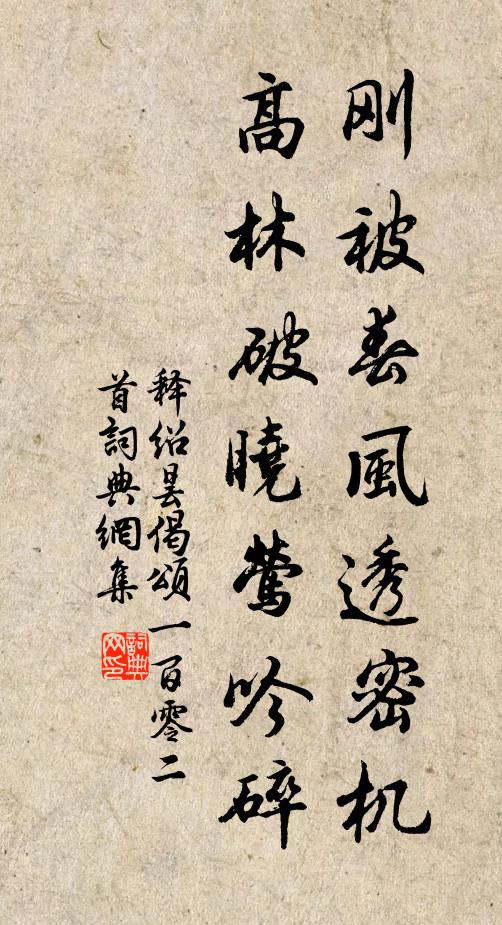 刚被春風透密机
高林破曉鶯吟碎
释绍昙偈頌一百零二
首詞典網集
詞典
网印